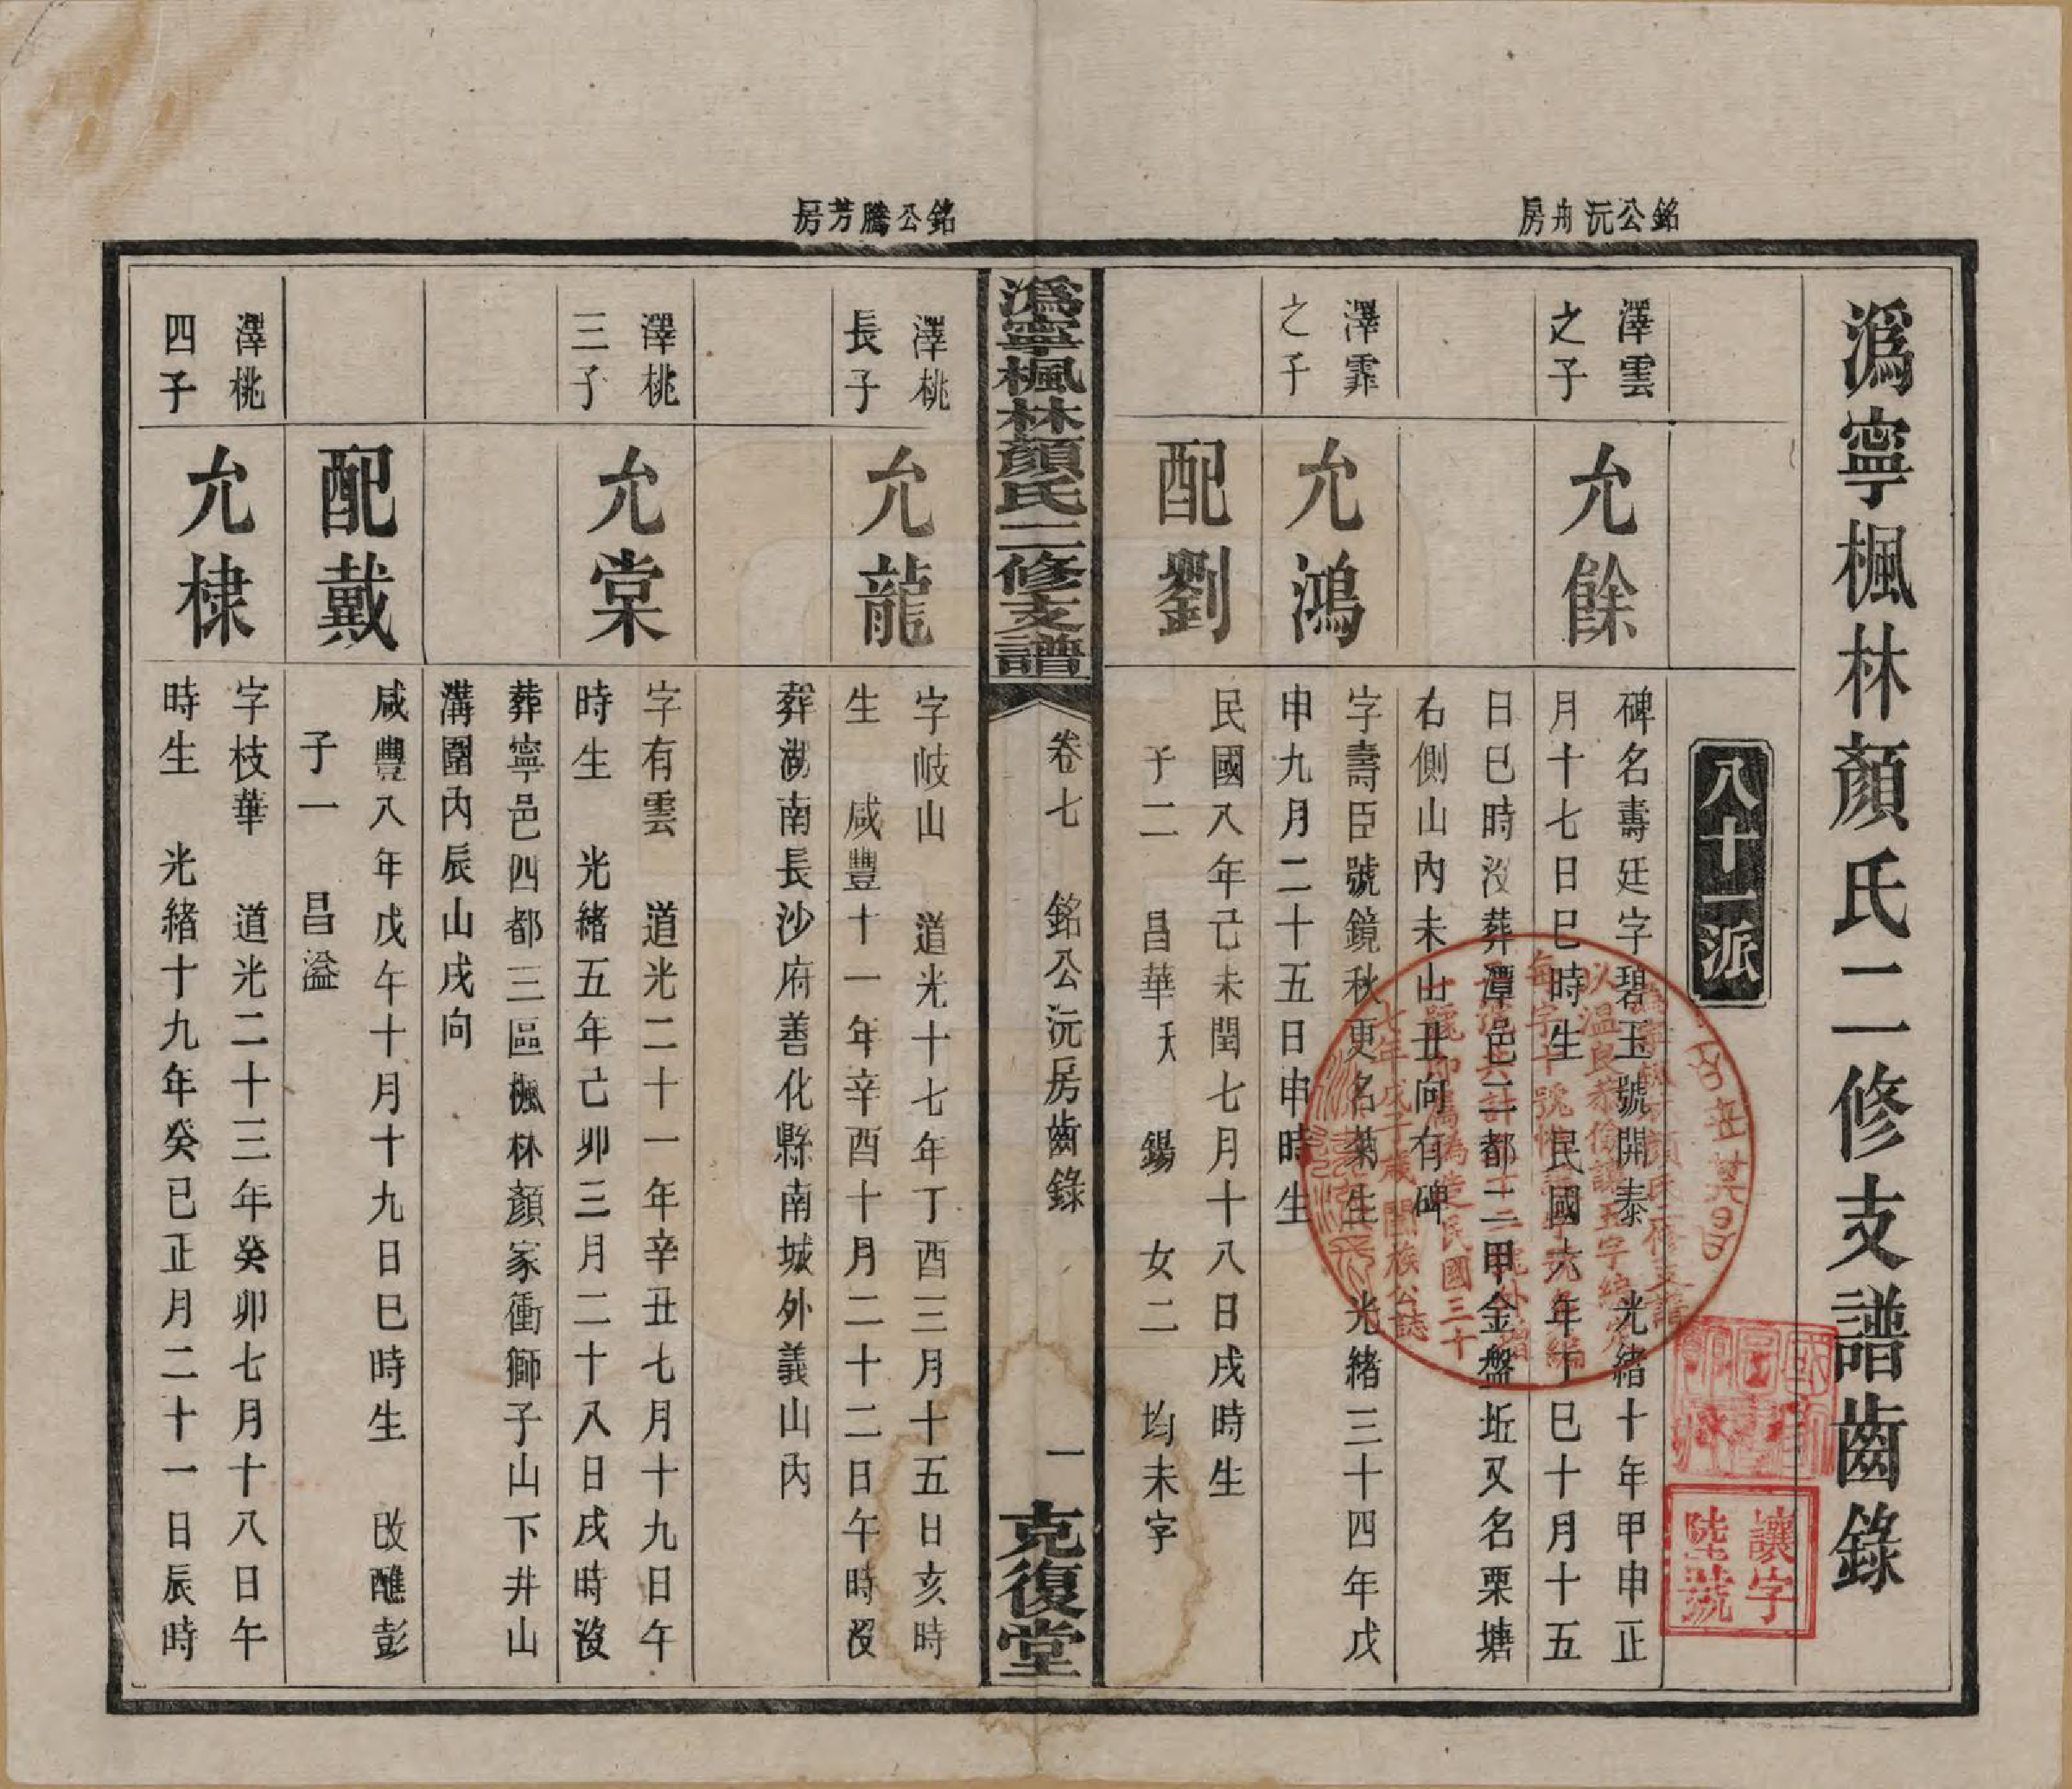 溈寧楓林顏氏二修支譜齒錄
八十一派
銘公沅舟房
澤雲
之子
允餘
碑名壽廷字碧玉號開泰　光緒十年甲申正
月十七日巳時生　民國六年丁巳十月十五
日巳時沒葬潭邑二都二甲金盤坵又名栗塘
右側山內未山丑向有碑
澤霏
之子
允鴻
字壽臣號鏡秋更名菊生　光緒三十四年戊
申九月二十五日申時生
配劉
民國八年己未閏七月十八日戌時生
子二　昌華殀　錫　女二　均未字
讓字
陸號
溈寧楓林顏氏二修支譜
卷七　銘公沅房齒錄
一
克復堂
銘公騰芳房
澤桃
長子
允龍
字岐山　道光十七年丁酉三月十五日亥時
生　咸豐十一年辛酉十月二十二日午時沒
葬湖南長沙府善化縣南城外義山內
澤桃
三子
允棠
字有雲　道光二十一年辛丑七月十九日午
時生　光緒五年己卯三月二十八日戌時沒
葬寧邑四都三區楓林顏家衝獅子山下井山
溝圍內辰山戌向
配戴
咸豐八年戊午十月十九日巳時生　改醮彭
子一　昌溢
澤桃
四子
允棣
字枝華　道光二十三年癸卯七月十八日午
時生　光緒十九年癸巳正月二十一日辰時